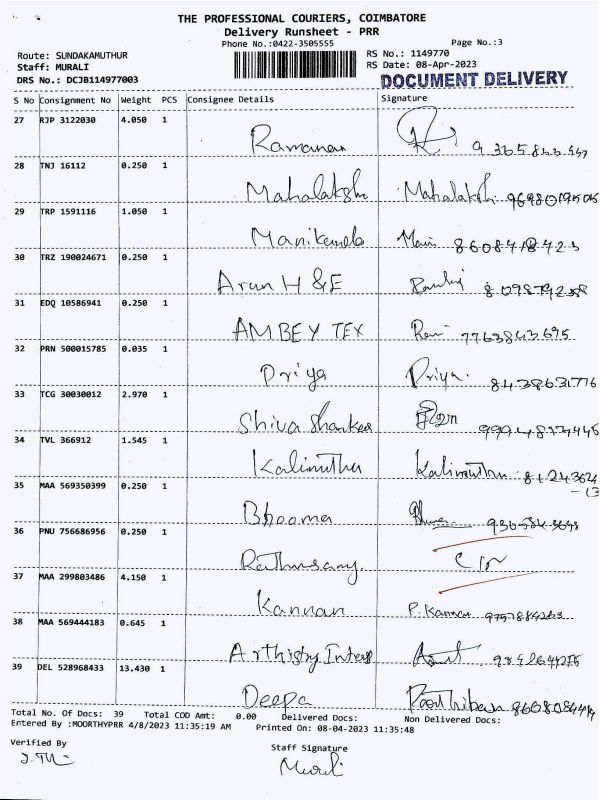 THE PROFESSIONAL COURIERS, COIMBATORE
Delivery Runsheet - PRR
Phone No.:0422-3505555 Page No.:3
Route: SUNDAKAMUTHUR RS No.: 1149770
Staff: MURALI RS Date: 08-Apr-2023
DRS No.: DCJB114977003 DOCUMENT DELIVERY
S No Consignment No Weight PCS Consignee Details Signature
27 RJP 3122030 4.050 1
Ramanan
28 TNJ 16112 0.250 1
Mahalaksha Mahalakshi
29 TRP 1591116 1.050 1
Mani
30 TRZ 190024671 0.250 1
Arun H & E
31 EDQ 10586941 0.250 1
AMBEY TEX 7763843695
32 PRN 500015785 0.035 1
Priya Priya. 8438631776
33 TCG 30030012 2.970 1
Shiva Shanker
34 TVL 366912 1.545 1
Kalimuthu Kalimuthu 81243624
-13
35 MAA 569350399 0.250 1
Bhooma
36 PNU 756686956 0.250 1
37 MAA 299803486 4.150 1
Kannan P. Kannan
38 MAA 569444183 0.645 1
39 DEL 528968433 13.430 1
Deepa
Total No. Of Docs: 39 Total COD Amt: 0.00 Delivered Docs: Non Delivered Docs:
Entered By :MOORTHYPRR 4/8/2023 11:35:19 AM Printed On: 08-04-2023 11:35:48
Verified By Staff Signature
Murali